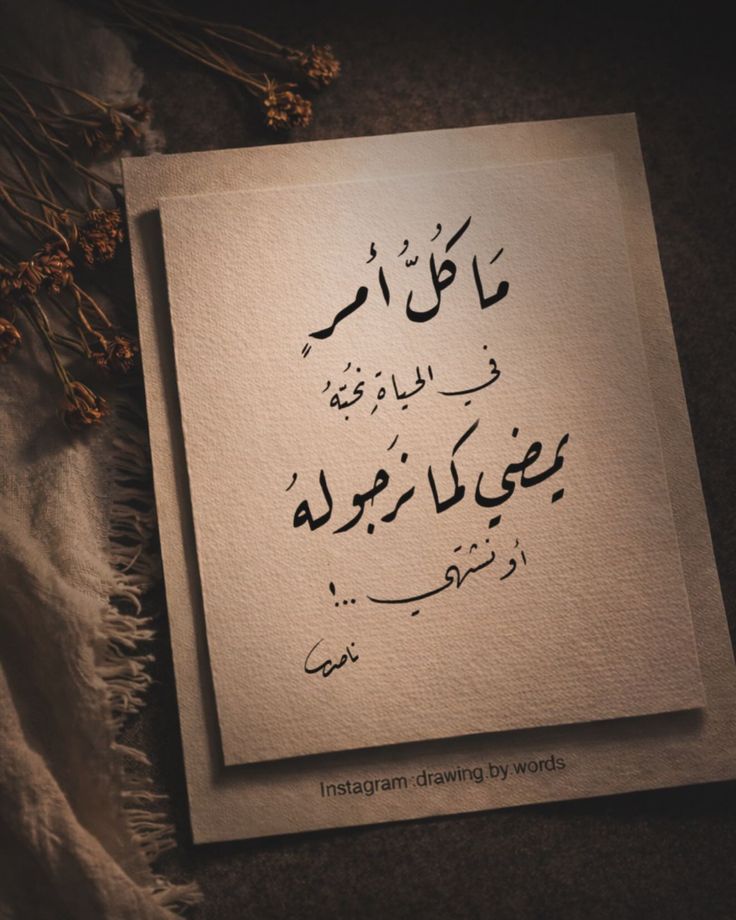 مَا كُلُّ أُمرٍ
في الحياةِ نُحُبّهُ
يمضي كما نَرجو لهُ
أو نشتهي ...!
Instagram:drawing.by.words